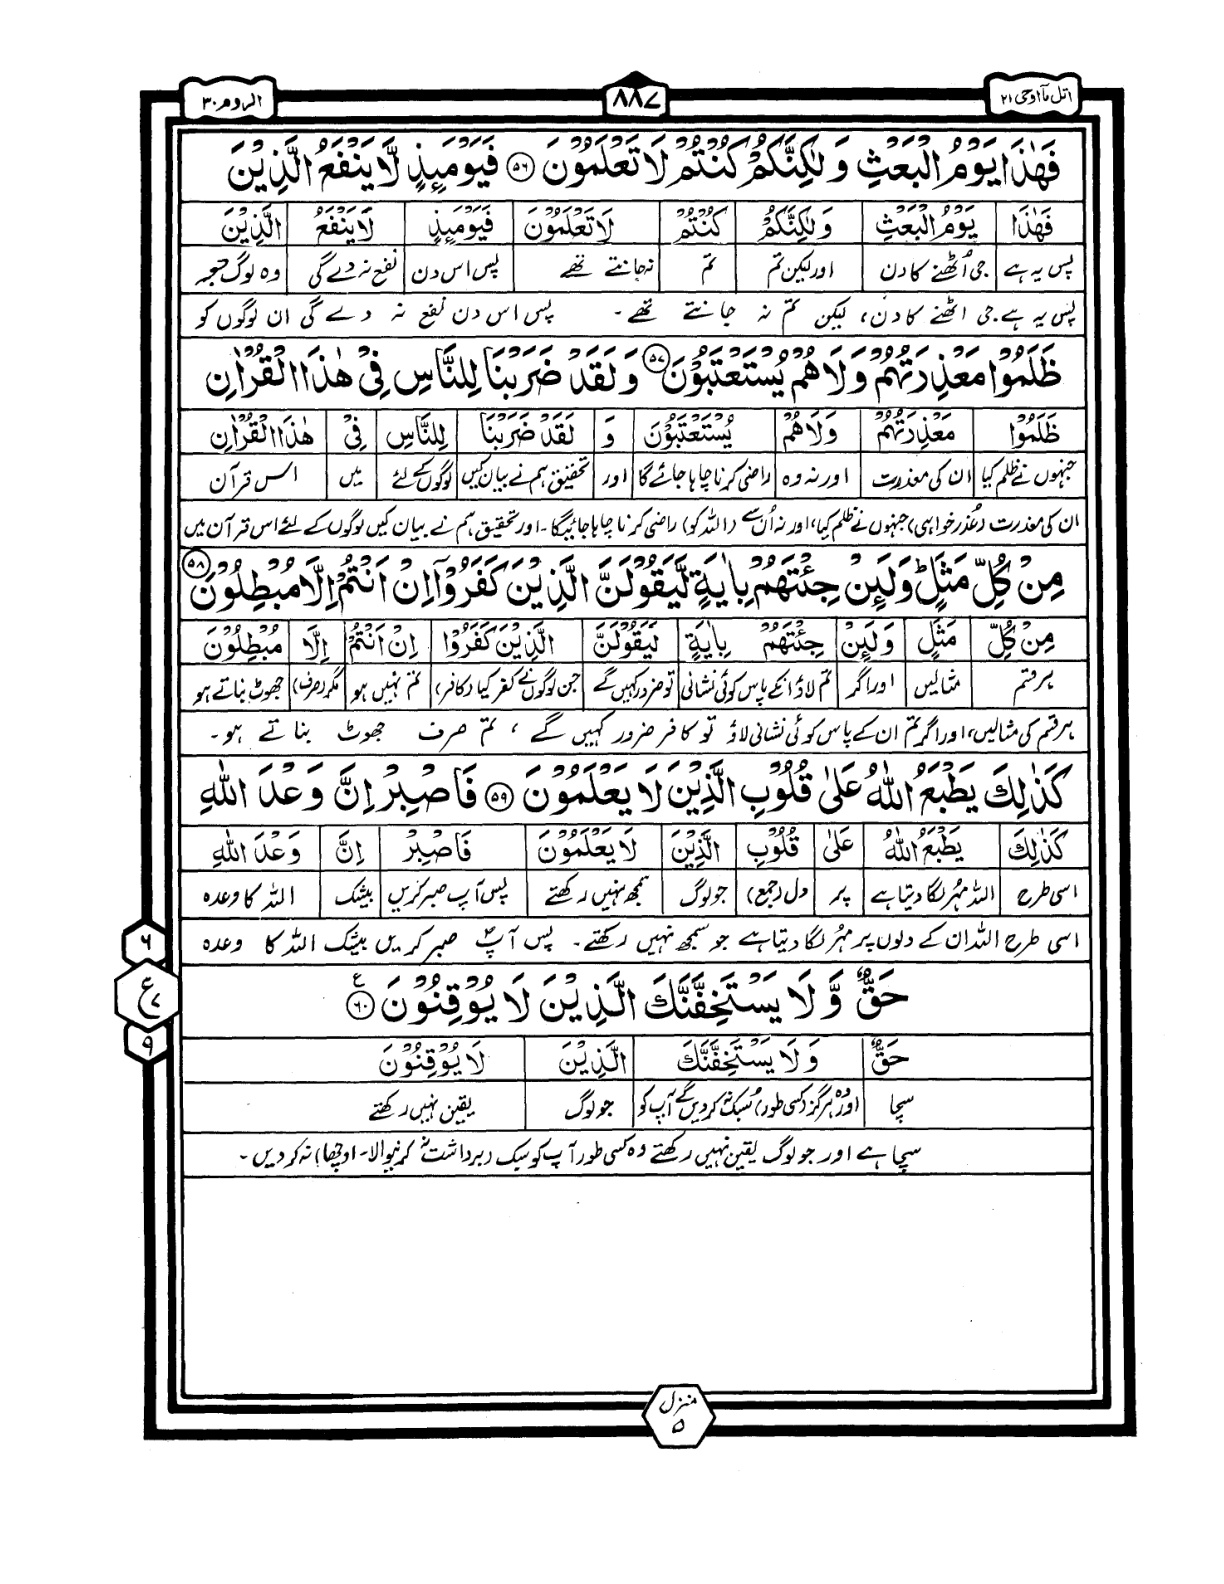 اتل مآ اوحی ۲۱
۸۸۷
الروم ۳۰
فَهٰذَا يَوْمُ الْبَعْثِ وَلٰكِنَّكُمْ كُنْتُمْ لَا تَعْلَمُوْنَ ۵۶ فَيَوْمَئِذٍ لَّا يَنْفَعُ الَّذِيْنَ
فَهٰذَا يَوْمُ الْبَعْثِ وَلٰكِنَّكُمْ كُنْتُمْ لَا تَعْلَمُوْنَ فَيَوْمَئِذٍ لَّا يَنْفَعُ الَّذِيْنَ
پس یہ ہے جی اُٹھنے کا دن اور لیکن تم تم نہ جانتے تھے پس اس دن نفع نہ دے گی وہ لوگ جو
پس یہ ہے جی اٹھنے کا دن، لیکن تم نہ جانتے تھے۔ پس اس دن نفع نہ دے گی ان لوگوں کو
ظَلَمُوْا مَعْذِرَتُهُمْ وَلَا هُمْ يُسْتَعْتَبُوْنَ ۵۷ وَلَقَدْ ضَرَبْنَا لِلنَّاسِ فِيْ هٰذَا الْقُرْاٰنِ
ظَلَمُوْا مَعْذِرَتُهُمْ وَلَا هُمْ يُسْتَعْتَبُوْنَ وَ لَقَدْ ضَرَبْنَا لِلنَّاسِ فِيْ هٰذَا الْقُرْاٰنِ
جنہوں نے ظلم کیا ان کی معذرت اور نہ وہ راضی کرنا چاہا جائے گا اور تحقیق ہم نے بیان کیں لوگوں کے لئے میں اس قرآن
ان کی معذرت (عذر خواہی) جنہوں نے ظلم کیا، اور نہ اُن سے (اللہ کو) راضی کرنا چاہا جائیگا۔ اور تحقیق ہم نے بیان کیں لوگوں کے لئے اس قرآن میں
مِنْ كُلِّ مَثَلٍ وَلَئِنْ جِئْتَهُمْ بِاٰيَةٍ لَّيَقُوْلَنَّ الَّذِيْنَ كَفَرُوْٓا اِنْ اَنْتُمْ اِلَّا مُبْطِلُوْنَ ۵۸
مِنْ كُلِّ مَثَلٍ وَلَئِنْ جِئْتَهُمْ بِاٰيَةٍ لَيَقُوْلَنَّ الَّذِيْنَ كَفَرُوْا اِنْ اَنْتُمْ اِلَّا مُبْطِلُوْنَ
ہر قسم مثالیں اور اگر تم لاؤ انکے پاس کوئی نشانی تو ضرور کہیں گے جن لوگوں نے کفر کیا (کافر) تم نہیں ہو مگر (صرف) جھوٹ بناتے ہو
ہر قسم کی مثالیں، اور اگر تم ان کے پاس کوئی نشانی لاؤ تو کافر ضرور کہیں گے، تم صرف جھوٹ بناتے ہو۔
كَذٰلِكَ يَطْبَعُ اللّٰهُ عَلٰى قُلُوْبِ الَّذِيْنَ لَا يَعْلَمُوْنَ ۵۹ فَاصْبِرْ اِنَّ وَعْدَ اللّٰهِ
كَذٰلِكَ يَطْبَعُ اللّٰهُ عَلٰى قُلُوْبِ الَّذِيْنَ لَا يَعْلَمُوْنَ فَاصْبِرْ اِنَّ وَعْدَ اللّٰهِ
اسی طرح اللہ مُہر لگا دیتا ہے پر دل (جمع) جو لوگ سمجھ نہیں رکھتے پس آپ صبر کریں بیشک اللہ کا وعدہ
اسی طرح اللہ ان کے دلوں پر مہُر لگا دیتا ہے جو سمجھ نہیں رکھتے۔ پس آپؐ صبر کریں بیشک اللہ کا وعدہ
حَقٌّ وَّلَا يَسْتَخِفَّنَّكَ الَّذِيْنَ لَا يُوْقِنُوْنَ ع ۶۰
حَقٌّ وَلَا يَسْتَخِفَّنَّكَ الَّذِيْنَ لَا يُوْقِنُوْنَ
سچا اور وہ ہرگز (کسی طور) سُبک نہ کردیں گے آپ کو جو لوگ یقین نہیں رکھتے
سچا ہے اور جو لوگ یقین نہیں رکھتے وہ کسی طور آپ کو سبک (برداشت نہ کرنیوالا۔ اوچھا) نہ کردیں۔
۶
ع
۷
۹
منزل
۵